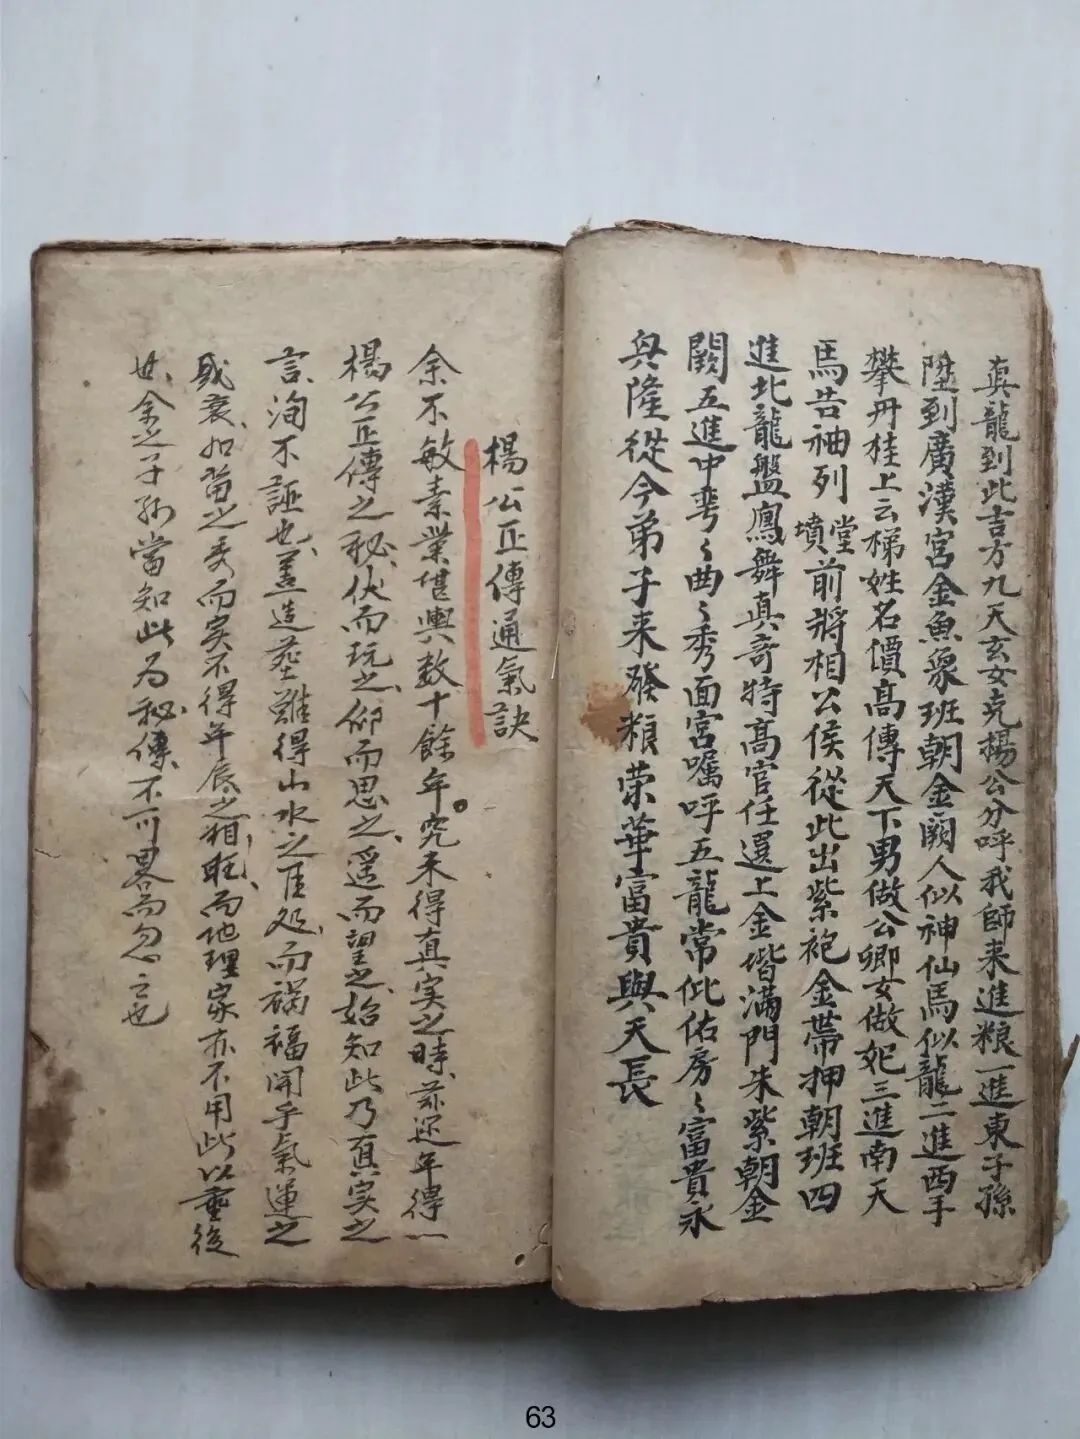 真龍到此吉方九天玄女克揚公分呼我師来進粮一進東子孫
陞到廣漢宮金魚衆班朝金闕人似神仙馬似龍二進西手
攀丹桂上云梯姓名價高傳天下男做公卿女做妃三進南天
馬告袖列堂墳前將相公侯從此出紫袍金帶押朝班四
進北龍盤鳳舞真奇特高官任還上金堦滿門朱紫朝金
闕五進中彎〻曲〻秀面宮囑呼五龍常佌佑房〻富貴永
興隆從今弟子来發粮荣華富貴與天長
楊公正傳通氣訣
余不敏素業堪輿数十餘年究未得真实之時茲近年得
楊公正傳之秘伏而玩之仰而思之遥而望之始知此乃真实之
言洵不誣也盖造塟雖得山水之佳处而禍福関乎氣運之
盛衰如苗之秀而实不得年辰之相旺而地理家亦不用此以重後
世余之子孙當知此为秘傳不可畧而忽之也
63